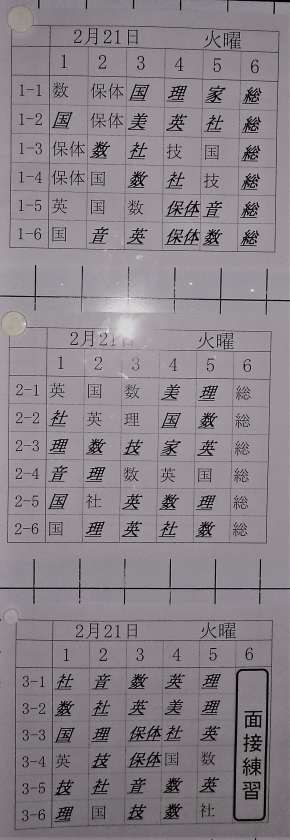 2月21日 火曜
1 2 3 4 5 6
1-1 数 保体 国 理 家 総
1-2 国 保体 美 英 社 総
1-3 保体 数 社 技 国 総
1-4 保体 国 数 社 技 総
1-5 英 国 数 保体 音 総
1-6 国 音 英 保体 数 総
2月21日 火曜
1 2 3 4 5 6
2-1 英 国 数 美 理 総
2-2 社 英 理 国 数 総
2-3 理 数 技 家 英 総
2-4 音 理 数 英 国 総
2-5 国 社 英 数 理 総
2-6 国 理 英 社 数 総
2月21日 火曜
1 2 3 4 5 6
3-1 社 音 数 英 理
3-2 数 社 英 美 理
3-3 国 理 保体 社 英
3-4 英 技 保体 国 数
3-5 技 社 音 数 英
3-6 理 国 技 数 社
面接練習